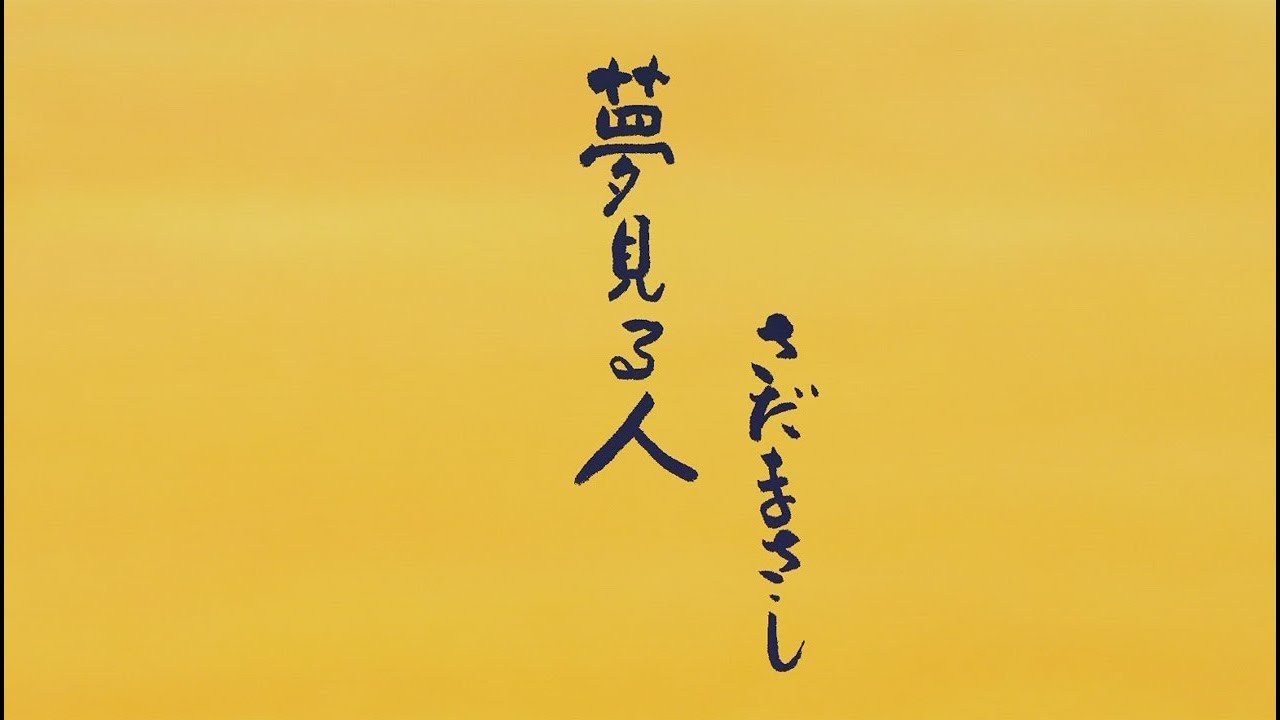 夢見る人
さだまさし